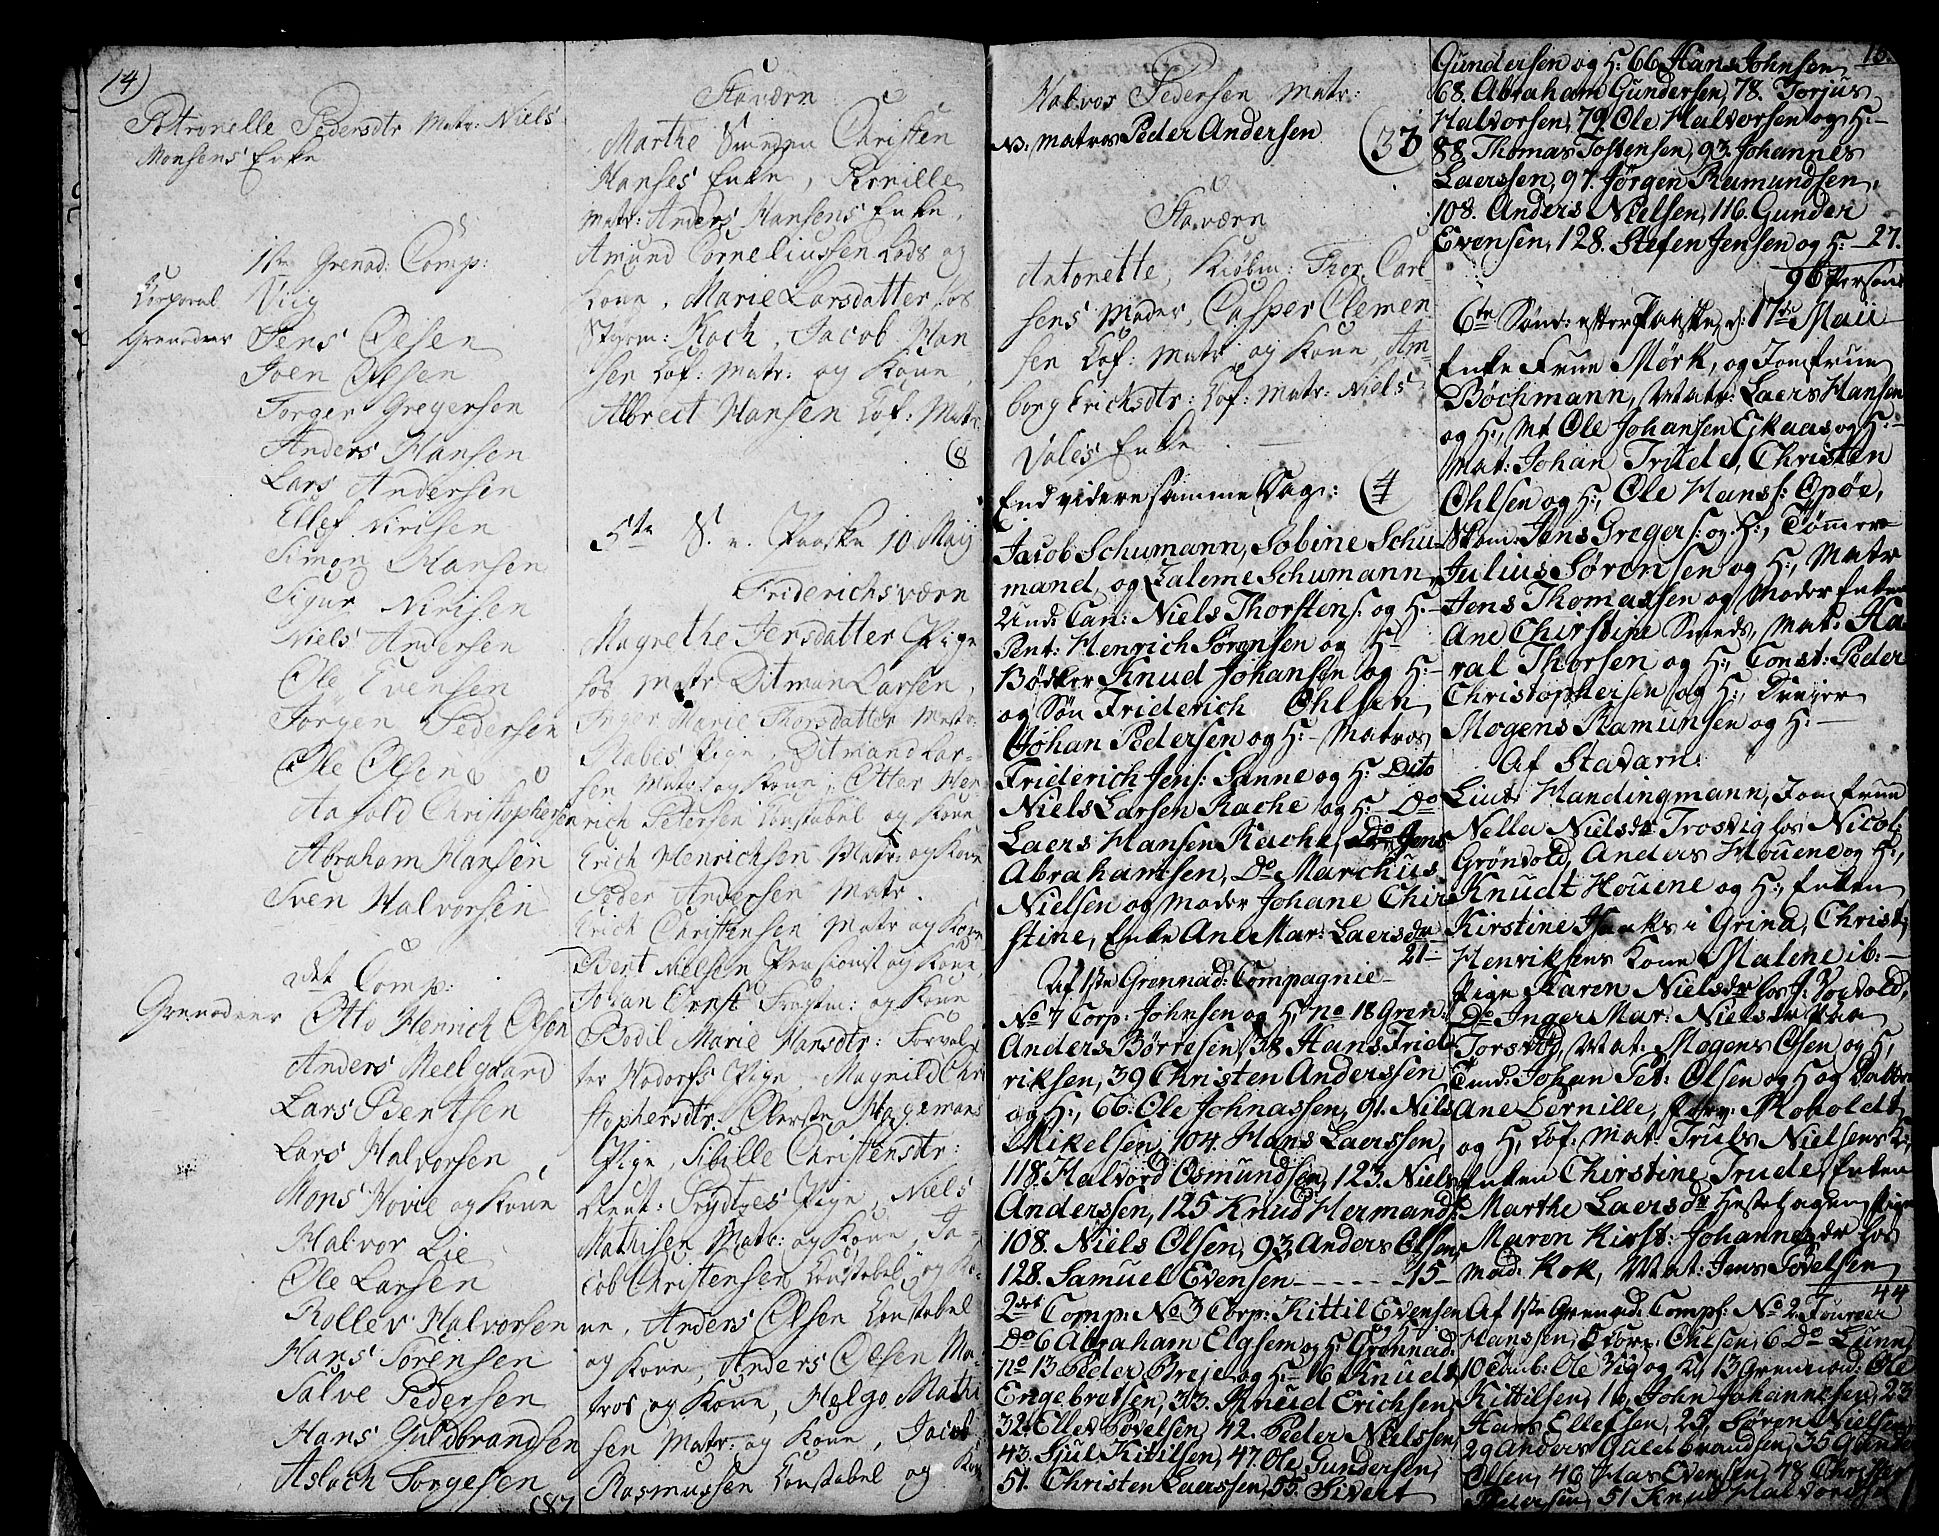 14)
Petronelle Pedersdtr Matr: Niels
Monsens Enke
1ste Grenad: Comp:
Corporal Viig
Grenaderer Jens Olsen
Joen Olsen
Torger Gregersen
Anders Hansen
Lars Andersen
Ellef Nirisen
Simon Hansen
Sigur Nirisen
Niels Andersen
Ole Evensen
Jørgen Pedersen
Ole Olsen
Aasold Christophersen
Abraham Hansen
Sven Halvorsen
2det Comp:
Grenaderer Otto Henrich Olsen
Anders Melgaard
Lars Bentsen
Lars Halvorsen
Mons Hovie og Kone
Halvor Lie
Ole Larsen
Rollev Halvorsen
Hans Sørensen
Salve Pedersen
Hans Guldbrandsen
Aslach Torgesen
(87
Staværn
Marthe Smeden Christen
Hanses Enke, Pernille
Matr: Anders Hansens Enke,
Amund Corneliussen Lods og
Kone, Marie Larsdatter hos
Styrm: Koch, Jacob Han
sen Cof: Matr: og Kone,
Albrect Hansen Cof: Matr.
(8
5te S. e. Paaske 10 Maij
Friderichsværn
Magrethe Jensdatter Pige
hos Matr: Ditman Larsen,
Inger Marie Thorsdatter Mestr.
Rabes Pige, Ditmand Lar-
sen Matr: og Kone, Otter Hen
rich Petersen Constabel og Kone
Erich Henrichsen Matr: og Kone
Peder Andersen Matr.
Erich Christensen Matr og Kone
Bent Nielsen Pensionist og Kone,
Johan Ernst Fregtm: og Kone
Bodil Marie Hansdtr: Forval
ter Wodorfs Pige, Magnild Chri
stophersdtr: Oberste Hagemans
Pige, Sibille Christensdtr:
Lieut: Frydtzes Pige, Niels
Mathisen Matr: og Kone, Ja-
cob Christensen Constabel og Ko-
ne, Anders Olsen Constabel
og Kone, Anders Olsen Ma-
tros og Kone, Helge Mathi
sen Matr: og Kone, Jacob
Rasmussen Constabel og Kone
Halvor Pedersen Matr:
No: Matros Peder Andersen (33
Staværn
Antonette, Kiøbm: Thor Carl
sens Moder, Casper Clemen
sen Cof: Matr og Kone, Am-
borg Ericksdtr: Cof: Matr: Niels
Dales Enke.
End videre samme Dag: (4
Jacob Schumann, Sobine Schu-
mand, og Saleme Schumann,
Und: Can: Niels Thorstens: og H:-
Pent: Henrich Sørensen og H-
Bødker Knud Johansen og H:-
og Søn Friderich Ohlsen
Johan Pedersen og H:- Matros
Friderich Jens: Sanne og H: Dito
Niels Larsen Rache og H: Do
Laers Hansen Rache, Do Jens
Abrahamsen, Do Marchus
Nielsen og Moder Johane Chir
stine, Enke Ane Mar: Laersdtr
21-
Af 1ste Grennad: Compagnie
No 7 Corp: Johnsen og H: no 18 Gren:
Anders Børresen, 38 Hans Frid
riksen, 39 Christen Anderssen
og H:, 66: Ole Johnassen, 91. Nils
Mikelsen, 104 Hans Laerssen,
118. Halvord Osmundsen, 123. Niels
Anderssen, 125 Knud Hermands:
108. Niels Olsen, 93. Anders Olsen
128. Samuel Evensen - - - - 15-
2det Comp: No 3 Corp: Kittil Evensen
Do 6 Abraham Elgsem og H: Grennad
no 13 Peder Breje og H:- 16 Knud
Engebretsen, 33. Knud Erichsen,
32 Ellev Søvelsen, 42. Peder Nielssen,
43. Sjul Kittilsen, 47. Ole Gundersen,
51. Christen Laerssen, 55. Sivert
15.
Gundersen og H: 66 Hans Johnsen
68. Abraham Gundersen, 78. Torjus
Halvorsen, 79. Ole Halvorsen og H:-
88. Thomas Tostensen, 93. Johannes
Laerssen, 97. Jørgen Ramundsen,
108. Anders Nielsen, 116. Gunder
Evensen, 128. Stefen Jensen og H:- 27.
96 Persone
6te Sønd: efter Paaske, d: 17de Maii
Enke Frue Mørk, og Jomfrue
Bøchmann, Matr: Laers Hansen
og H:, Mt Ole Johansen Ejkaas og H:-
Mat: Johan Trude, Christen
Ohlsen og H:, Ole Hanss: Opøe,
Skom: Jens Gregers: og H:, Tømer
Julius Sørensen og H:, Matr
Jens Thomassen og Moder Enken
Ane Chirstine Smeds, Mat: Ha
ral Thorsen og H:, Const: Peder
Christophersen og H:, Drejer
Mogens Ramunsen og H:-
Af Stavarn
Liut: Handingmann, Jomfrue
Nella Nielsdr Trosvig hos Nicol:
Grønvold, Anders Houene og H:,
Knudt Houene og H:, Enken
Kirstine Isaaks i Grina, Christ:
Henriksens Kone Malene ib:-
Pige Karen Nielsdr hos J: Boevold,
Do Inger Mar: Nielsdr paa
Torsvig, Mat: Mogens Olsen og H,
Tmd: Johan Pet: Olsen og H og Datter
Ane Pernille, Forv: Roholdt
og H, Cof: Mat: Truls Nielsens K:,
Enken Chirstine Trude, Enken
Marthe Laersdr Hestehagen, Pige
Maren Kirst: Johannesdr hos
Mad: Kok, Mat: Jens Søvelsen
44
Af 1ste Grenad: Comp: No 2 Fourer
Hanssen, 5 Corp: Ohlsen, 6 Do Lunn,
10 Tamb: Ole Vig og H, 13 Grennad: Ole
Kittilsen, 16, John Johannesen, 23
Hans Ellefsen, 25. Søren Nielsen
29 Anders Guldbrandsen, 35 Gunde
Olsen, 46 Has Evensen, 48 Christen
Pedersen, 51 Knud Halvorsen